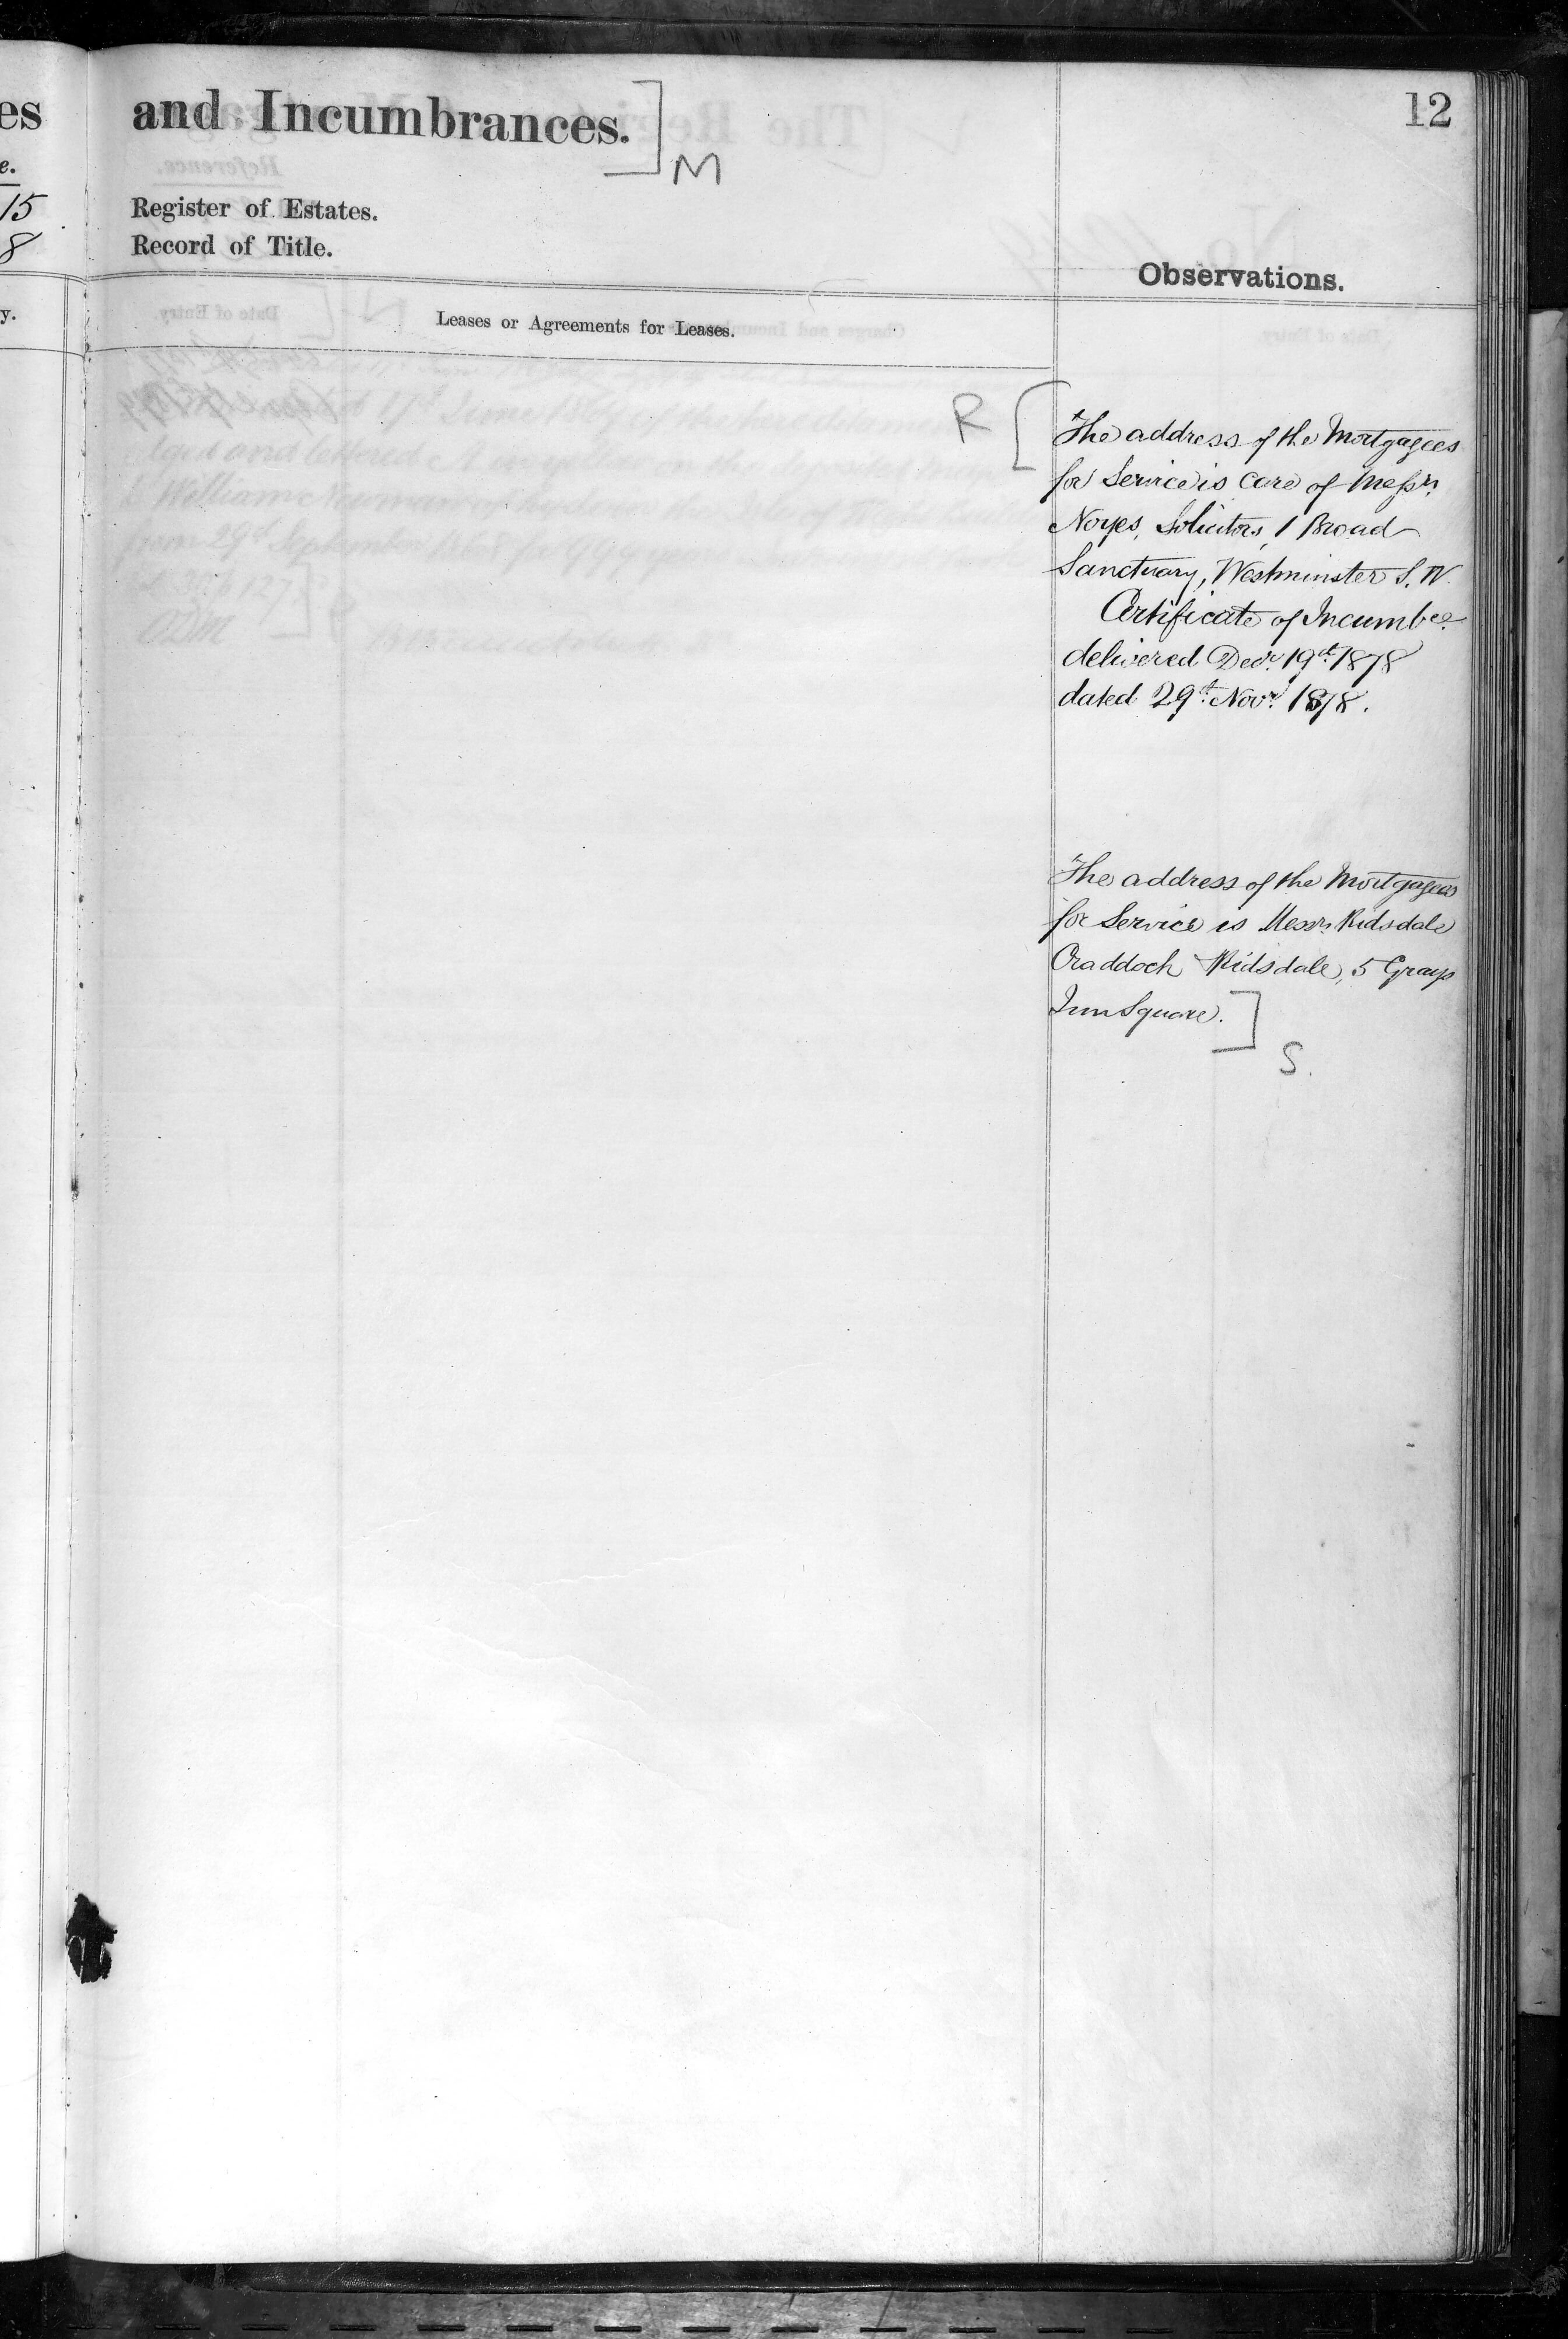 es
and Incumbrances.
M
12
e.
15
8
Register of Estates.
Record of Title.
Observations.
y.
Leases or Agreements for Leases.
R
The address of the Mortgagees
for Service is Care of Messrs.
Noyes, Solicitors, 1 Broad
Sanctuary, Westminster S.W.
Certificate of Incumbce.
delivered Decr. 19th. 1878
dated 29th. Novr. 1878.
The address of the Mortgagees
for Service is Messrs. Ridsdale
Craddock Ridsdale, 5 Grays
Inn Square.
S.